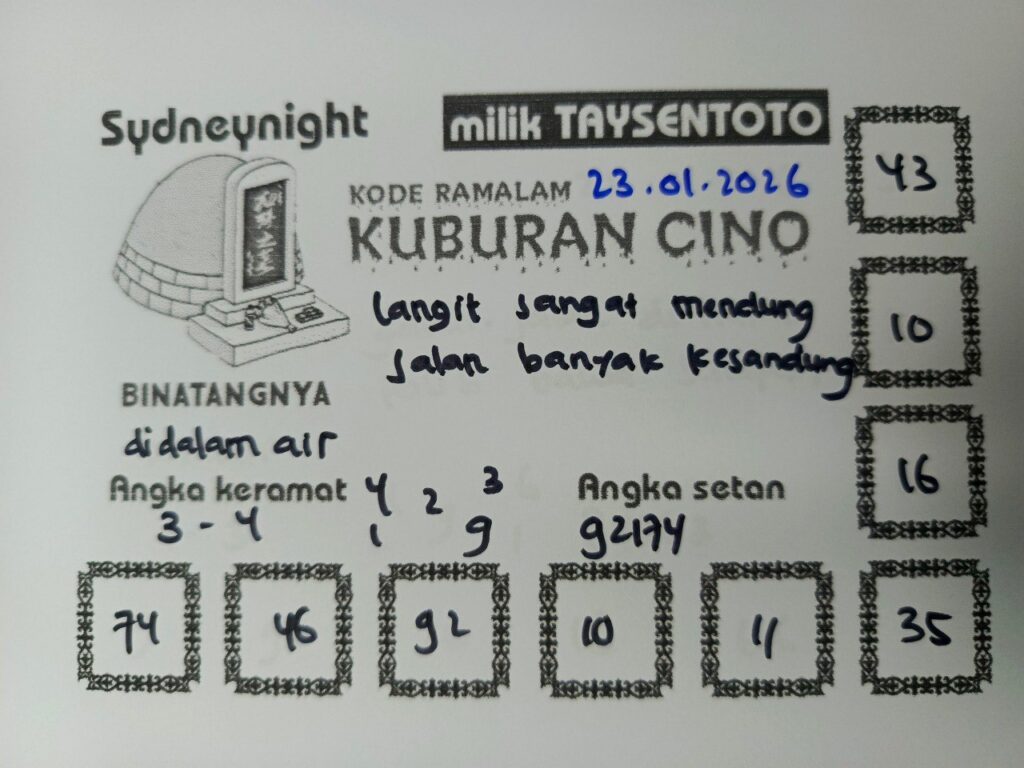 Sydneynight
milik TAYSENTOTO
43
KODE RAMALAM 23.01.2026
KUBURAN CINO
10
langit sangat mendung
Jalan banyak kesandung
BINATANGNYA
didalam air
16
Angka keramat
3 - 4
4 2 3
1 9
Angka setan
92174
74 46 92 10 11 35